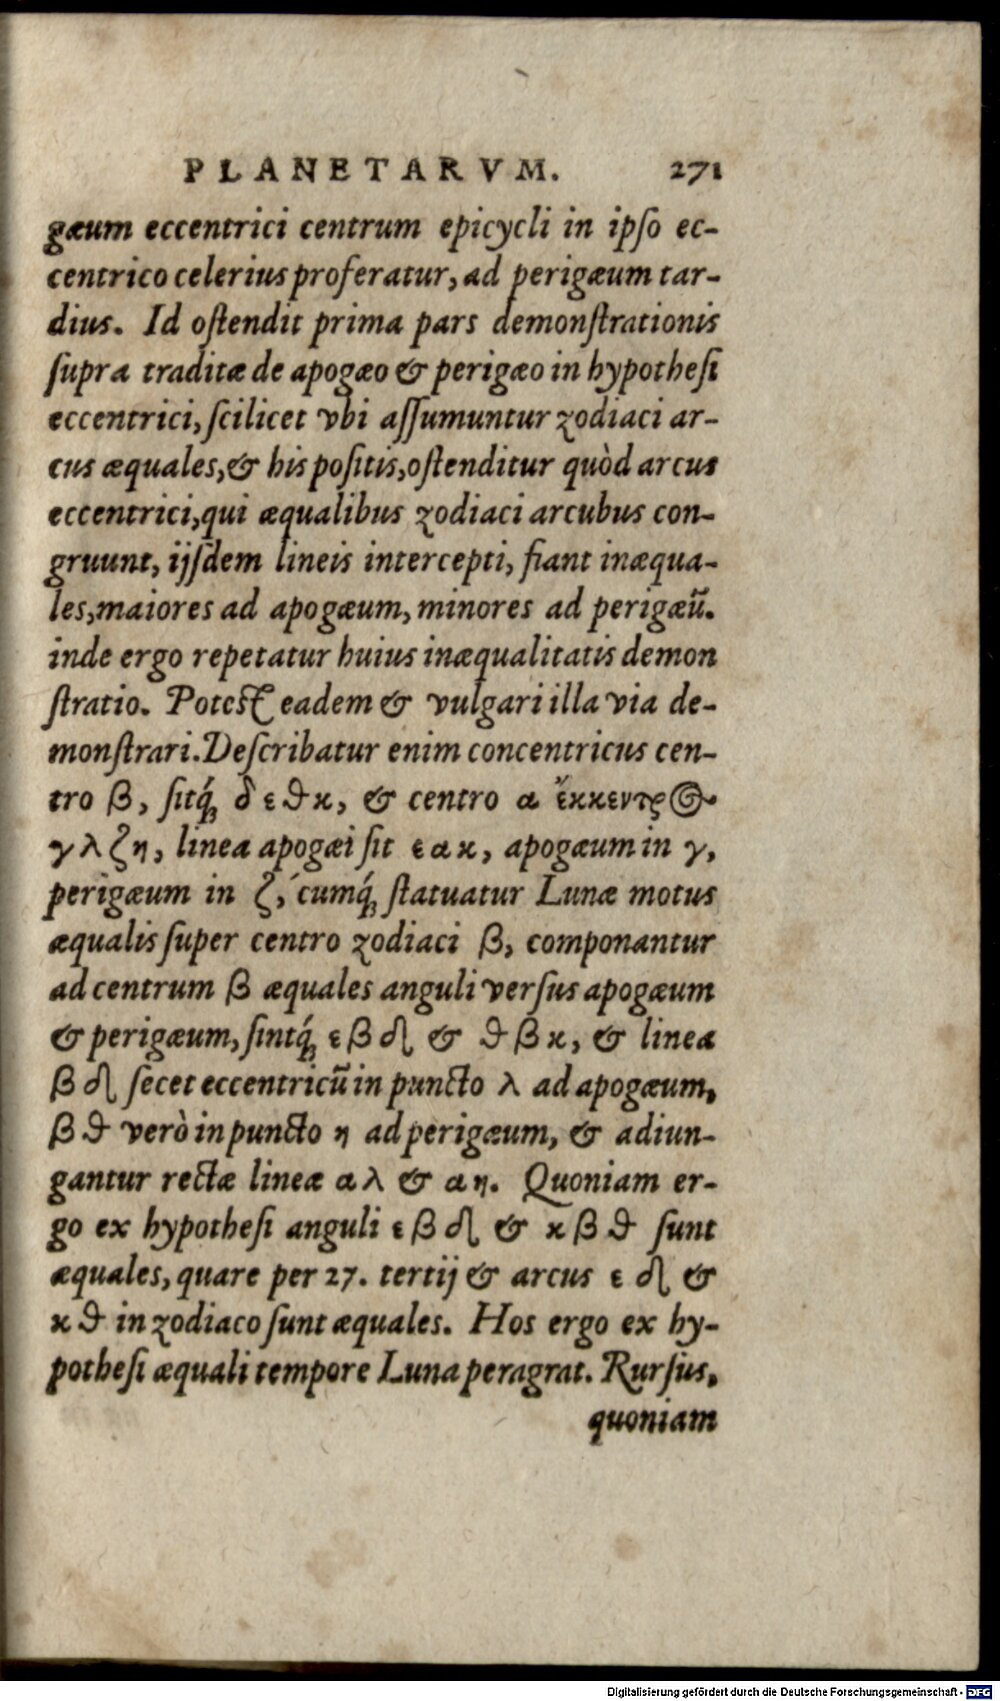 PLANETARVM. 271
gæum eccentrici centrum epicycli in ipſo ec-
centrico celerius proferatur, ad perigæum tar-
dius. Id oſtendit prima pars demonſtrationis
ſupra traditæ de apogæo & perigæo in hypotheſi
eccentrici, ſcilicet vbi aſſumuntur zodiaci ar-
cus æquales, & his poſitis, oſtenditur quòd arcus
eccentrici, qui æqualibus zodiaci arcubus con-
gruunt, ijſdem lineis intercepti, fiant inæqua-
les, maiores ad apogæum, minores ad perigæũ.
inde ergo repetatur huius inæqualitatis demon
ſtratio. Poteſt eadem & vulgari illa via de-
monſtrari. Deſcribatur enim concentricus cen-
tro β, ſitq́; δ ε ϑ κ, & centro α ἔκκεντρος
γ λ ζ η, linea apogæi ſit ε α κ, apogæum in γ,
perigæum in ζ, cumq́; ſtatuatur Lunæ motus
æqualis ſuper centro zodiaci β, componantur
ad centrum β æquales anguli verſus apogæum
& perigæum, ſintq́; ε β δ & ϑ β κ, & linea
β δ ſecet eccentricũ in puncto λ ad apogæum,
β ϑ verò in puncto η ad perigæum, & adiun-
gantur rectæ lineæ α λ & α η. Quoniam er-
go ex hypotheſi anguli ε β δ & κ β ϑ ſunt
æquales, quare per 27. tertij & arcus ε δ &
κ ϑ in zodiaco ſunt æquales. Hos ergo ex hy-
potheſi æquali tempore Luna peragrat. Rurſus,
quoniam
Digitalisierung gefördert durch die Deutsche Forschungsgemeinschaft - DFG